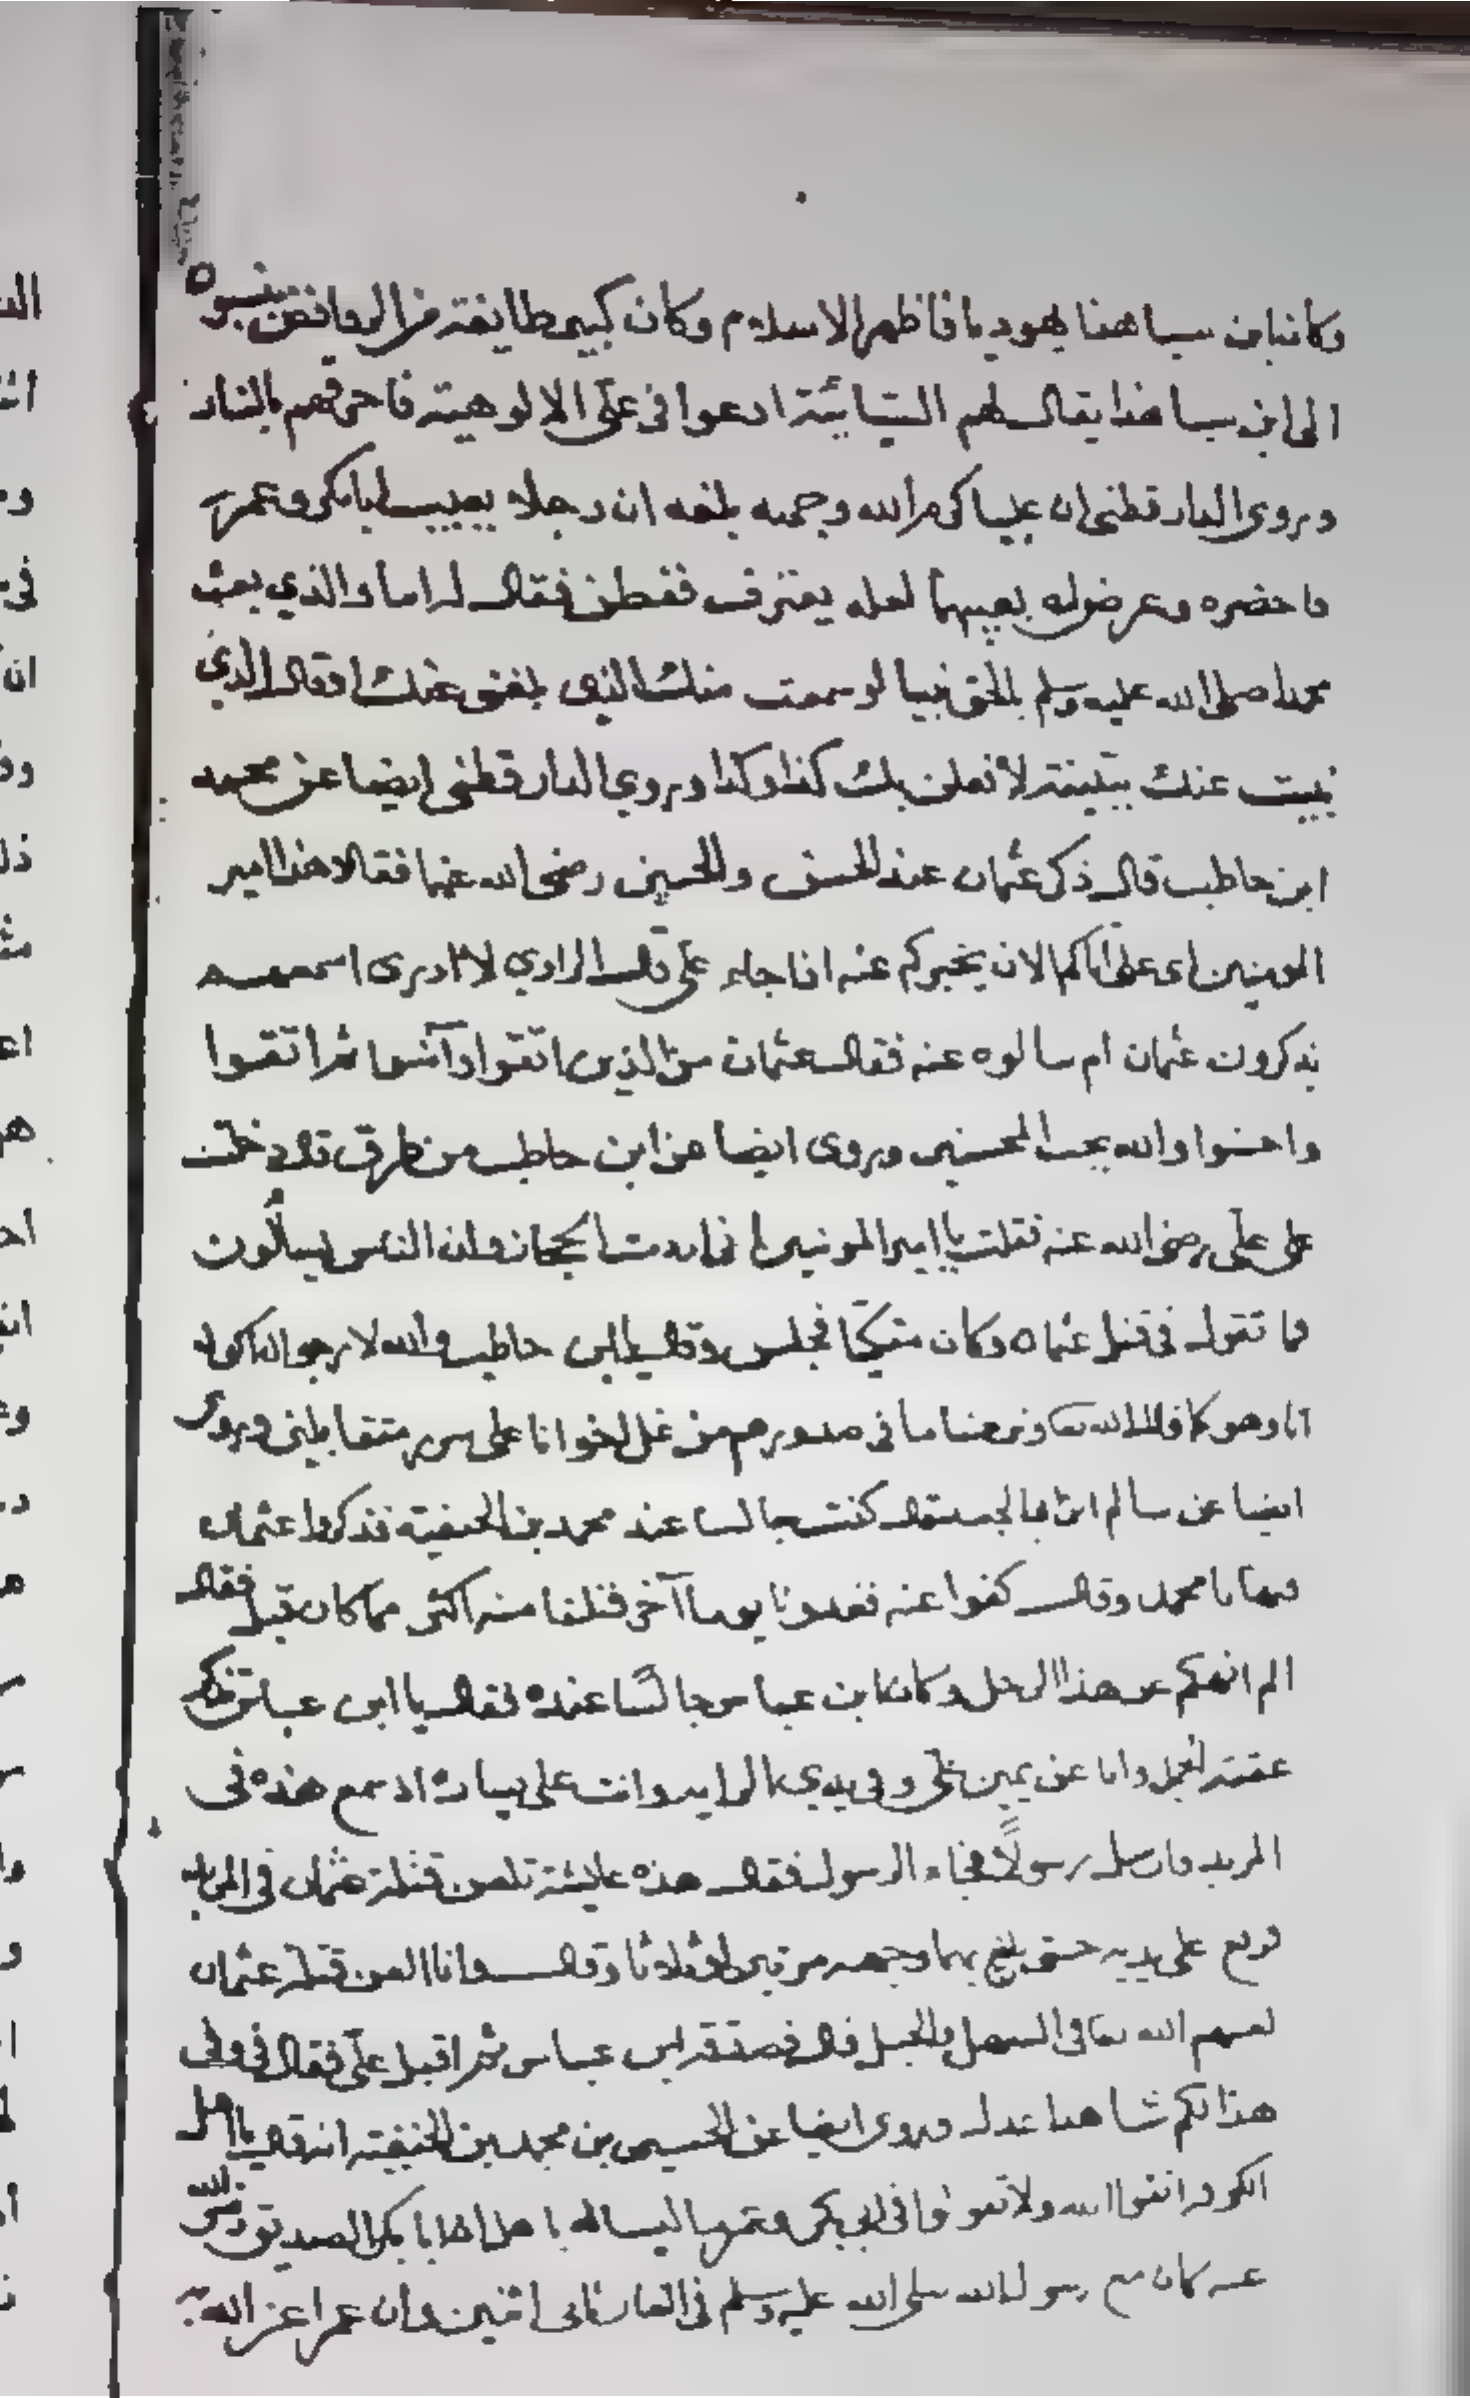 وكان ابن سبا هذا يهوديا فاظهر الاسلام وكان كبير طايفة من الروافض ينسبوه
الى ابن سبا هذا يقال لهم السبائية ادعوا فى علي الالوهية فاحرقهم بالنار
وروى الدارقطنى ان عليا كرم الله وجهه بلغه ان رجلا يعيب ابابكر وعمر
فاحضره وعرض له بعيبهما لعله يعترف ففطن فقال له اما والذي بعث
محمدا صلى الله عليه وسلم بالحق نبيا لو سمعت منك الذى بلغنى عنك او قال الذي
نبيت عنك ببينة لافعلن بك كذا وكذا وروي الدارقطنى ايضا عن محمد
ابن حاطب قال ذكر عثمان عند الحسن والحسين رضى الله عنهما فقالا هذا امير
المومنين اى على اتاكم الان يخبركم عنه اذا جاء على قال الراوي لا ادرى اسمعهم
يذكرون عثمان ام سالوه عنه فقال عثمان من الذين اتقوا وآمنوا ثم اتقوا
واحسنوا والله يحب المحسنين وروى ايضا عن ابن حاطب من طرق قال دخلت
على علي رضى الله عنه فقلت يا امير المومنين انى اردت الحجاز وان الناس يسألون
فما تقول فى قتل عثمان وكان متيكا فجلس وقال يا ابن حاطب والله لارجو ان اكون
انا وهو كما قال الله تعا ونزعنا ما فى صدورهم من غل اخوانا على سرر متقابلين وروى
ايضا عن سالم ابن ابى الجعد قال كنت جالسا عند محمد بن الحنفية فذكروا عثمان
فنهانا محمد وقال كفوا عنه فغدونا يوما آخر فنلنا منه اكثر مما كان قبل فقال
الم انهكم عن هذا الرجل وكان ابن عباس جالسًا عنده فقال يا ابن عباس تذكر
عشية الجمل وانا عن يمين علي وفى يدي الراية وانت على يساره اذ سمع هذه فى
المربد فارسل رسولًا فجاء الرسول فقال هذه عايشة تلعن قتلة عثمان فى المربد
فرفع على يديه حتى بلغ بهما وجهه مرتين او ثلاثا وقال وانا العن قتلة عثمان
لعنهم الله تعا فى السهل والجبل قال فصدقه ابن عباس ثم اقبل علي فقال فى وفى
هذا لكم شاهدا عدل وروى ايضا عن الحسين بن محمد بن الحنفية انه قال يا اهل
الكوفة اتقوا الله ولا تقولوا فى ابى بكر وعمر ما ليسا له باهل ان ابا بكر الصديق رضى الله
عنه كان مع رسول الله صلى الله عليه وسلم فى الغار ثانى اثنين وان عمر اعز الله به